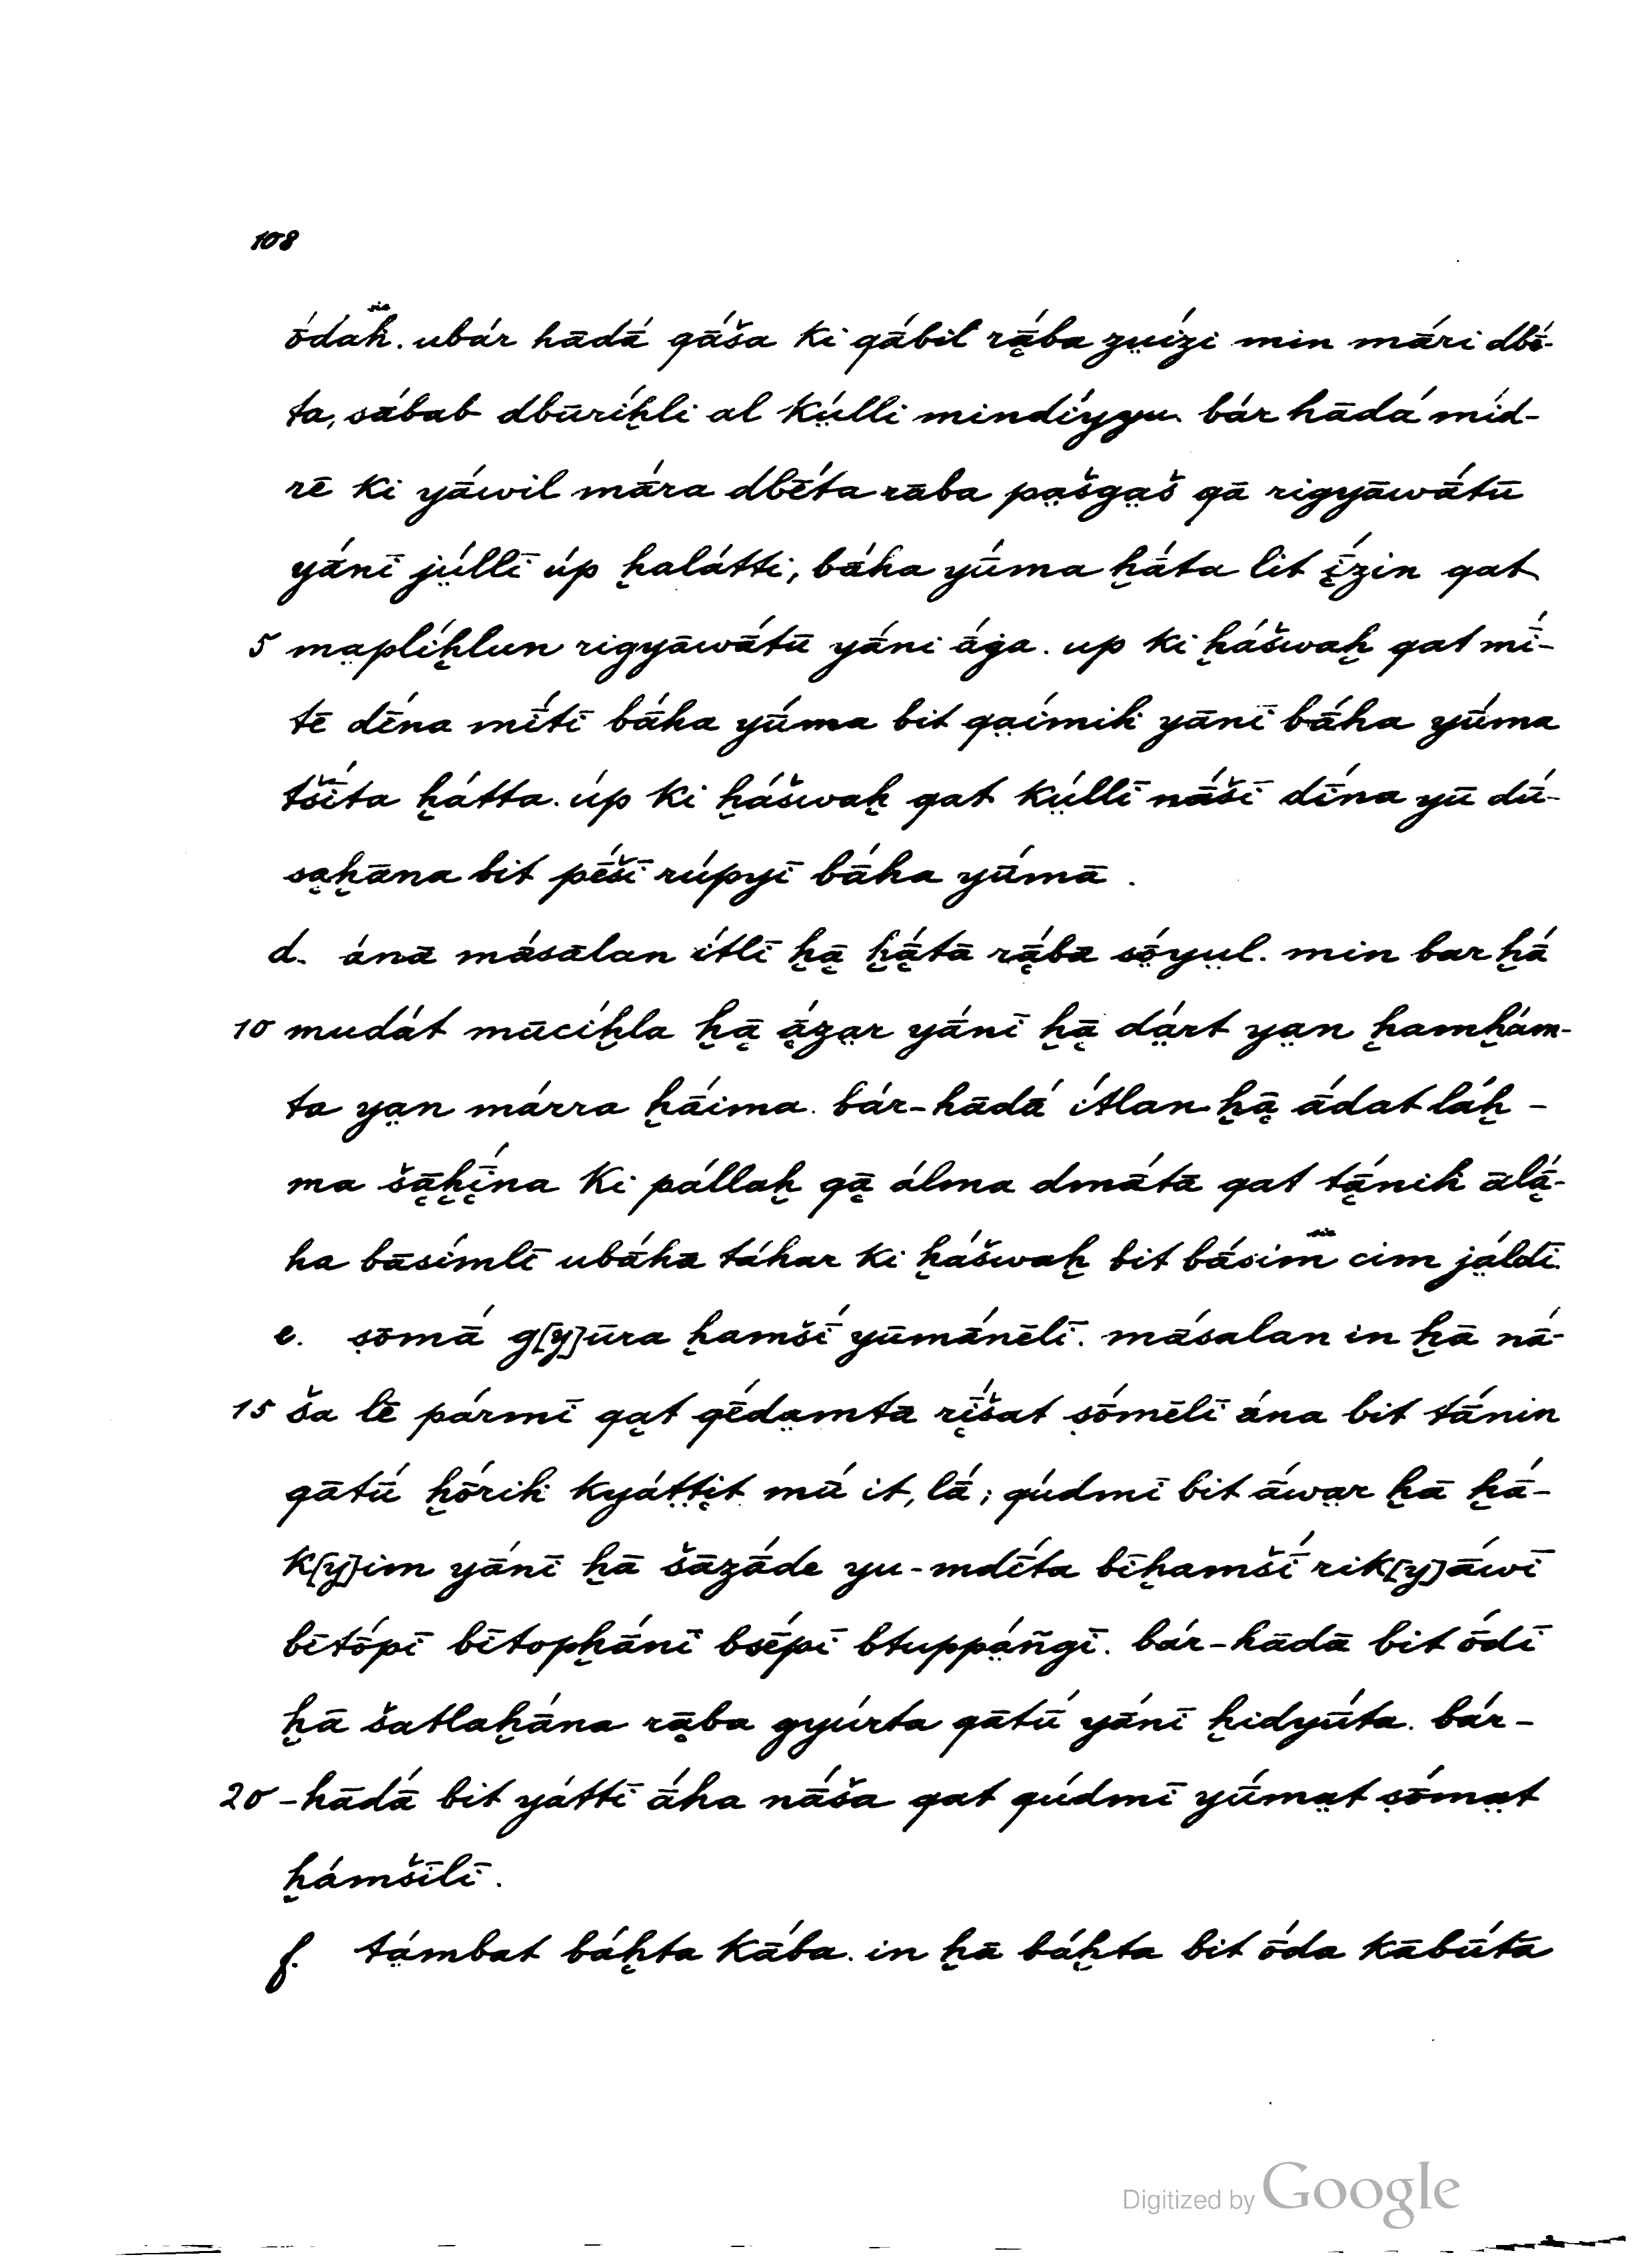 108
sic
ṓdaḣ. ubár hādā́ qā́ša ki qā́bil rā̜́ba zṳízi min mā́ri dbḗ-
ta, sábab dbūríḫli al kṳ́lli mindíyyu. bár hādā́ míd-
rē ki yā́wil mā́ra dbḗta rāba pa̤šga̤š qā rigyāwā́tū
yā́nī jṳ́llī úp ḫalátti, bā́ha yū́ma ḫā́ta lit ī̜́zin qat
5 ma̤plíḫlun rigyāwā́tū yā́ni ā́ġa. up ki ḫášwaḫ qat mī́-
tē dī́na mī́tī bā́ha yū́ma bit qa̤ímiḣ yānī bā́ha yū́ma
tšī́ta ḫátta. úp ki ḫášwaḫ qat kṳ́llī nā́šī dī́na yū dū́-
sa̜ḫāna bit pḗšī rúpyī bā́ha yū́mā .
d. ánā mā́sālan ítlī ḫā̜ ḫā̜́tā rā̜́bā sṓ̤yṳl. min bar ḫā́
10 mudát mūcíḫla ḫā̜ ā̜́za̤r yā́nī ḫā̜ dá̤rt ya̤n ḫamḫám-
ta ya̤n márra ḫā́ima. bár-hādā́ ítlan ḫā̜ ā́dat láḫ-
ma šā̜ḫī̜́na ki pállaḫ qā̜ álma dmā́tā qat tā̜́niḣ ālā̜́-
ha bāsímlī ubā́hā táhar ki ḫášwaḫ bit bā́sim cim já̤ldī.
sic
e. ṣōmā́ g[y]ūra ḫamšī́ yūmā́nēlī. mā́salan in ḫā nā́-
15 ša lē pármī qa̜t qḗda̤mtā rī̜́šat ṣṓmēlī ána bit tā́nin
qātū́ ḫṓriḣ kyáṭṭi̜t mū́ it, lā́; qúdmī bit ā́wa̤r ḫā ḫā́-
k[y]im yā́nī ḫā šāzā́de yu-mdī́ta bīḫamšī́ rik[y]ā́wī
bītṓpī bītopḫā́nī bsḗpī btuppá̤ñgī. bár-hādā bit ṓdī
ḫā šatlaḫā́na rā̜ba gyúrta qātū́ yā́nī ḫidyū́ta. bár-
20 -hādā́ bit yáttī ā́ha nā́ša qat qúdmī yū́ma̤t ṣṓma̤t
ḫámšīlī.
f. tá̤mbat báḫta kā́ba. in ḫā báḫta bit ṓda kābū́tā
Digitized by Google